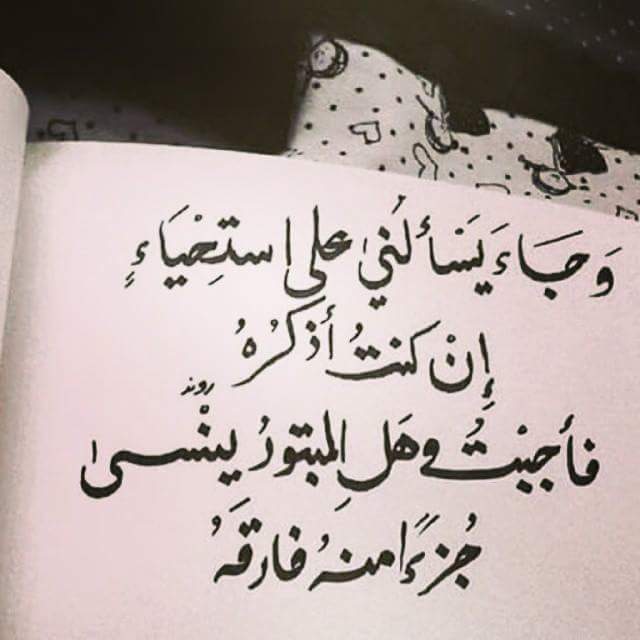 وَجَاءَ يَسْألُني على استِحْيَاءٍ
إِنْ كَنتُ أذكُرُهُ
روند
فأجبْتُ وهَلِ المبتورُ ينْسى
جُزءًا منهُ فارقَهُ